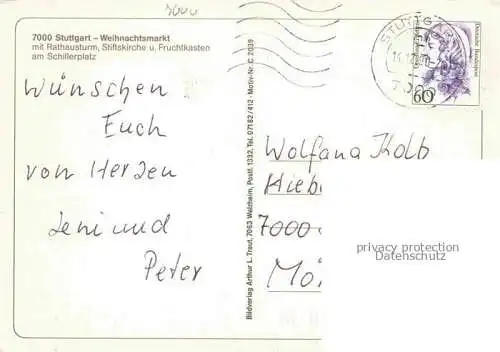 7000 Stuttgart – Weihnachtsmarkt
mit Rathausturm, Stiftskirche u. Fruchtkasten
am Schillerplatz
Wünschen
Euch
von Herzen
Leni und
Peter
Bildverlag Arthur L. Traut, 7063 Welzheim, Postf. 1332, Tel. 07182/412 · Motiv-Nr. C 2039
STUTTG
7000
Deutsche Bundespost
60
Wolfgang Kolb
Hieb
7000
Mö
privacy protection
Datenschutz